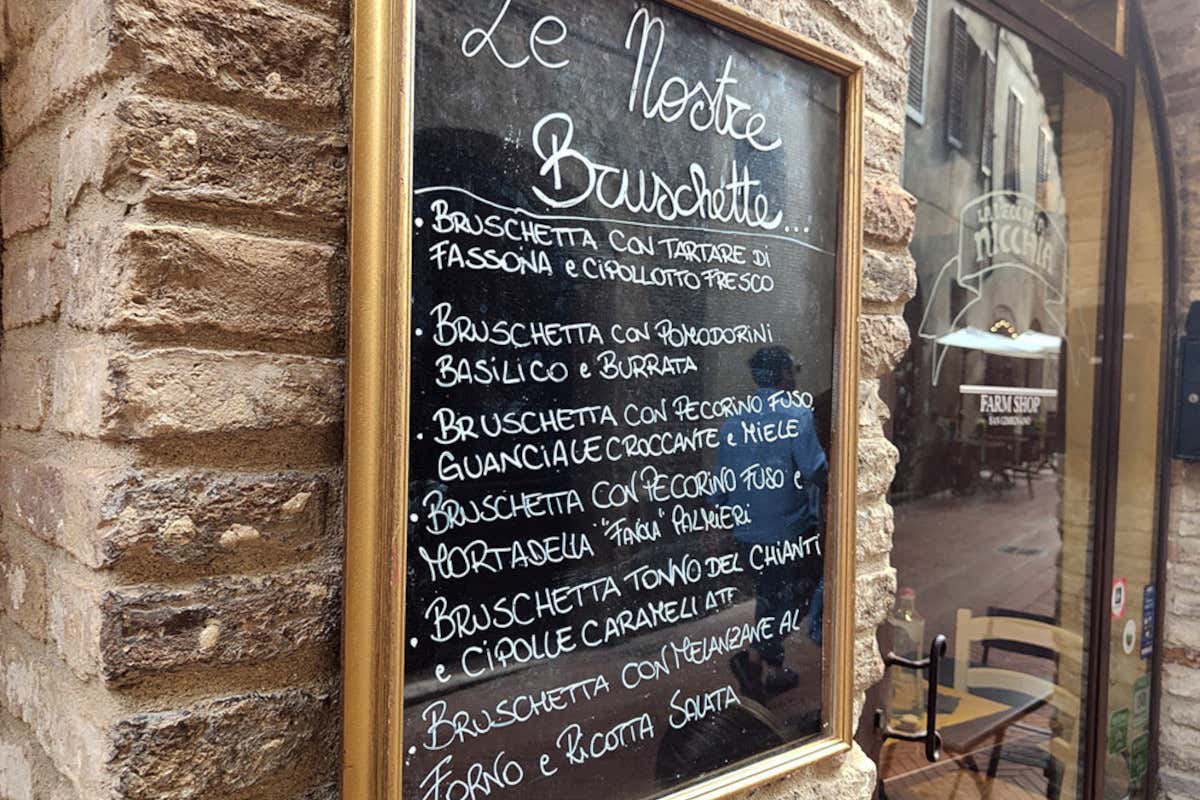 Le Nostre
Bruschette...
• BRUSCHETTA CON TARTARE DI
FASSONA e CIPOLLOTTO FRESCO
• BRUSCHETTA CON POMODORINI
BASILICO e BURRATA
• BRUSCHETTA CON PECORINO FUSO,
GUANCIALE CROCCANTE e MIELE
• BRUSCHETTA CON PECORINO FUSO e
MORTADELLA "FAVOLA" PALMIERI
• BRUSCHETTA TONNO DEL CHIANTI
e CIPOLLE CARAMELLATE
• BRUSCHETTA CON MELANZANE AL
FORNO e RICOTTA SALATA
LA
NICCHIA
FARM SHOP
SAN GIMIGNANO